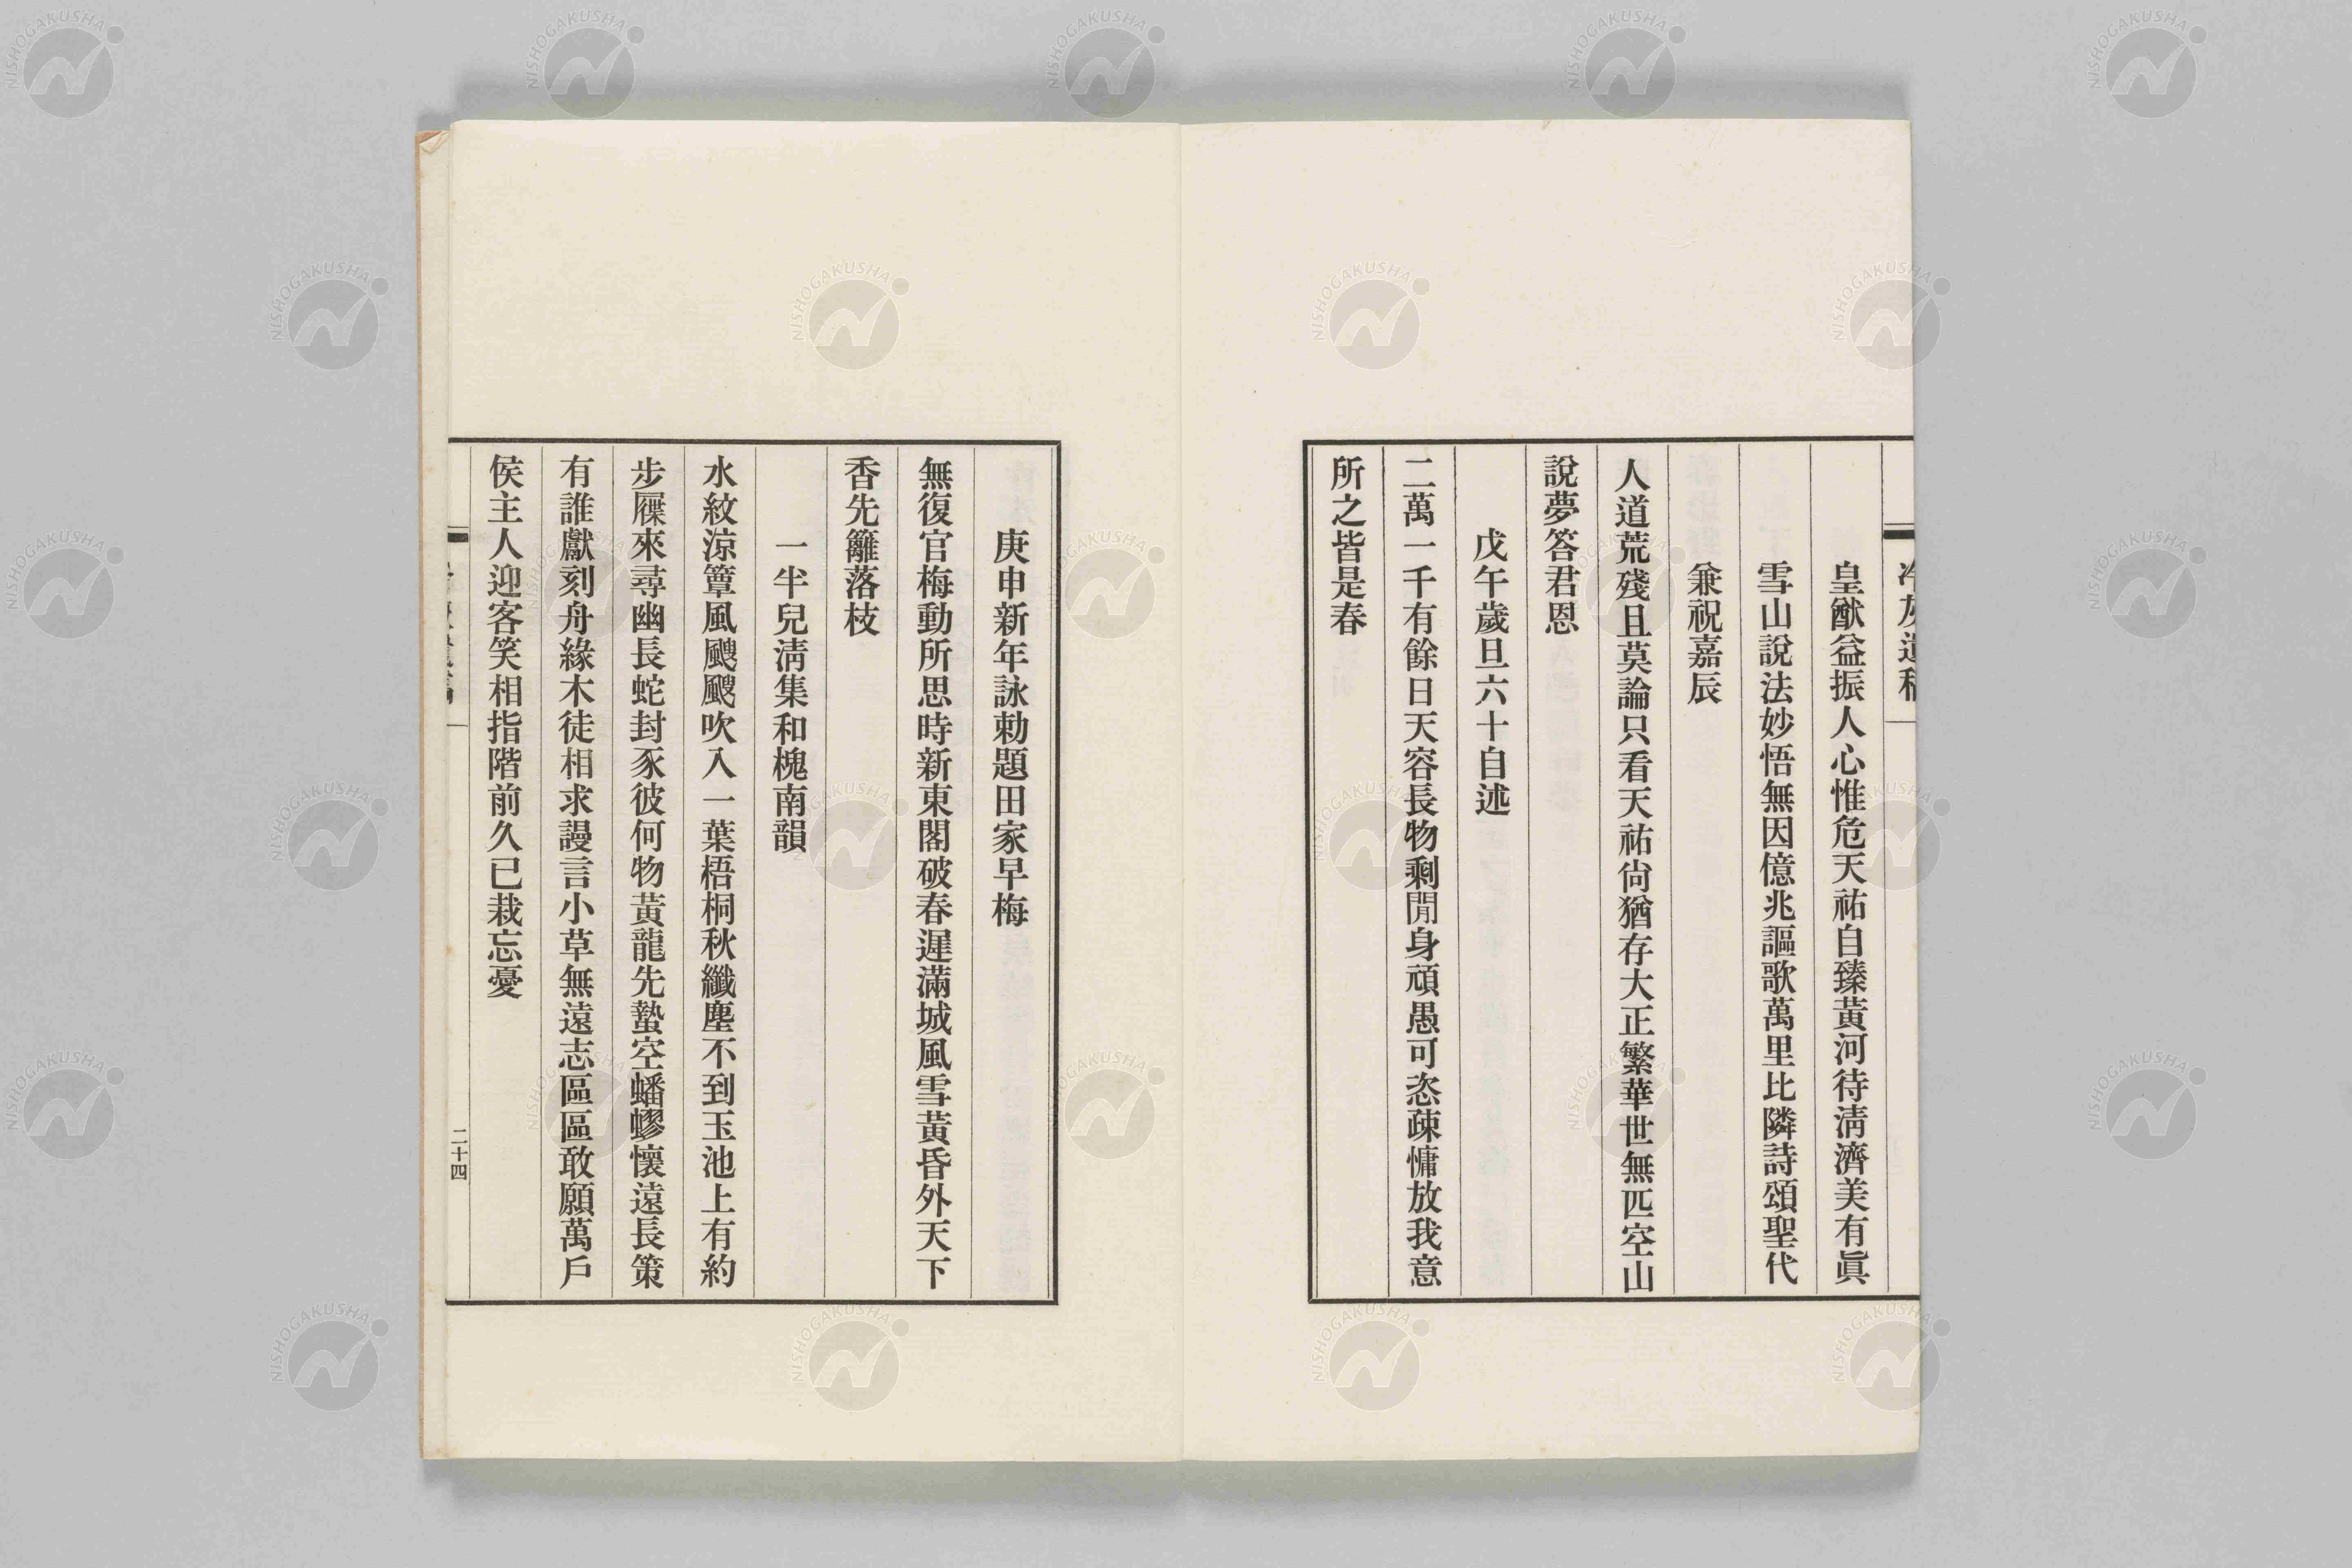 冷灰遺稿
皇猷益振人心惟危天祐自臻黃河待淸濟美有眞
雪山說法妙悟無因億兆謳歌萬里比隣詩頌聖代
兼祝嘉辰
人道荒殘且莫論只看天祐尙猶存大正繁華世無匹空山
說夢答君恩
戊午歲旦六十自述
二萬一千有餘日天容長物剩閒身頑愚可恣疎慵放我意
所之皆是春
庚申新年詠勅題田家早梅
無復官梅動所思時新東閣破春遲滿城風雪黃昏外天下
香先籬落枝
一半兒淸集和槐南韻
水紋涼簟風颼颼吹入一葉梧桐秋纖塵不到玉池上有約
步屧來尋幽長蛇封豕彼何物黃龍先蟄空蟠蟉懷遠長策
有誰獻刻舟緣木徒相求謾言小草無遠志區區敢願萬戶
侯主人迎客笑相指階前久已栽忘憂
二十四
NISHOGAKUSHA